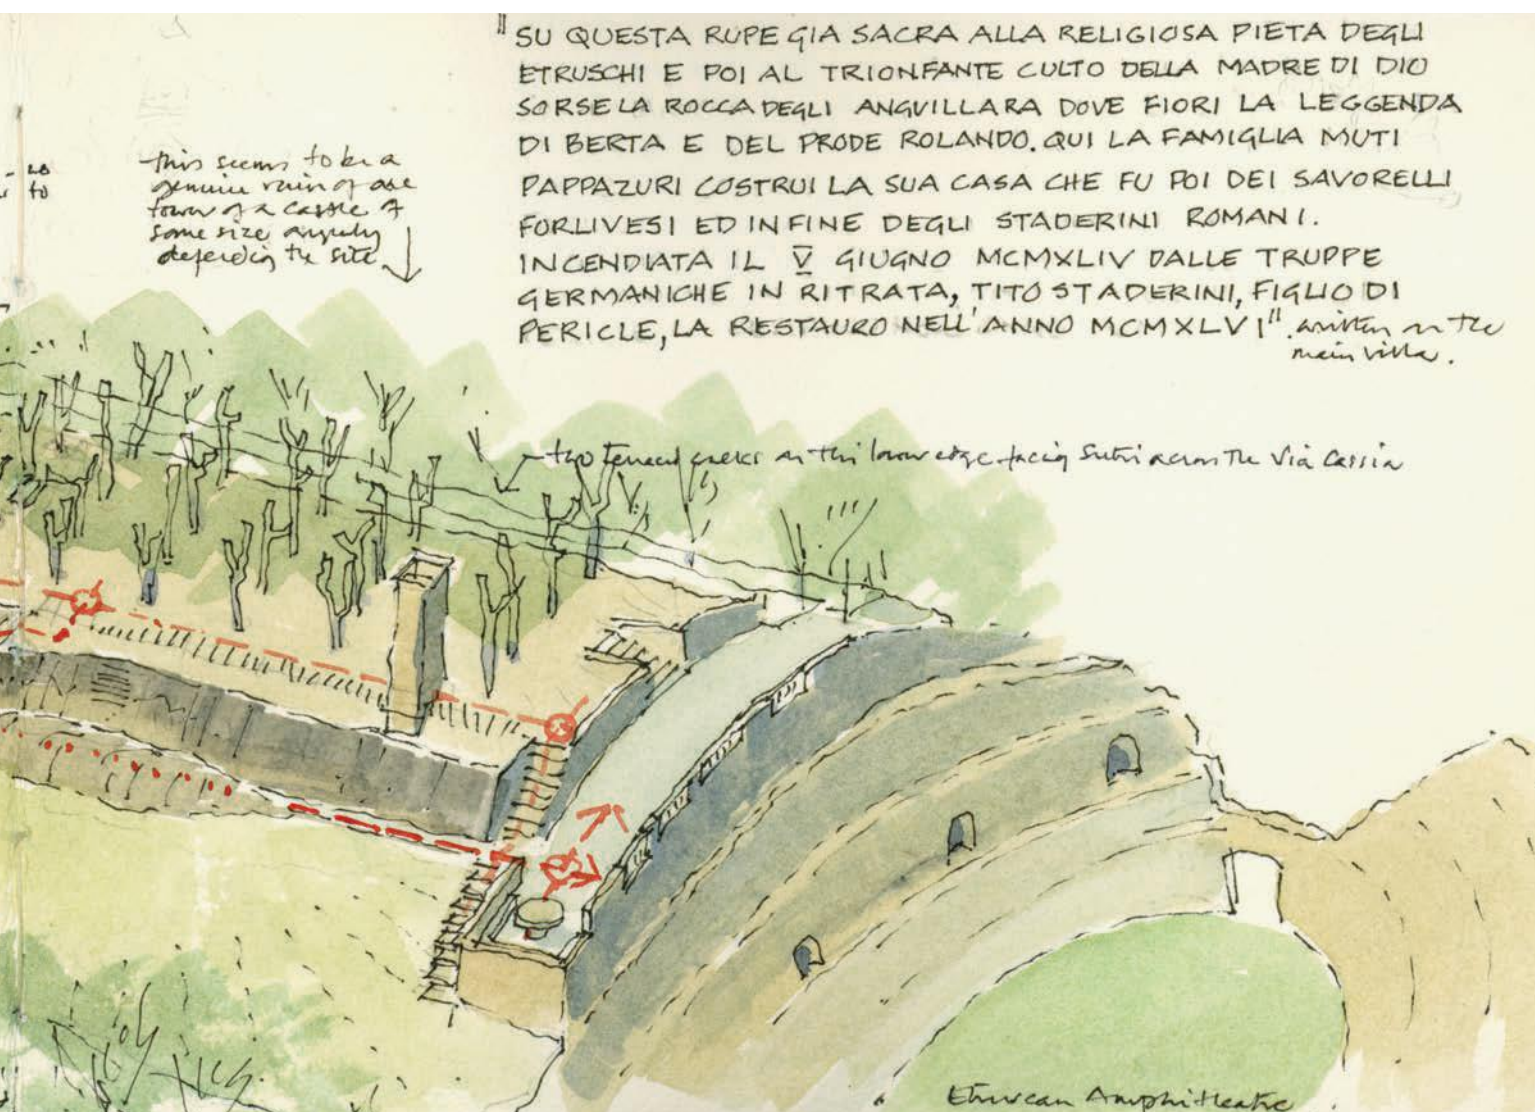 "SU QUESTA RUPE GIA SACRA ALLA RELIGIOSA PIETA DEGLI
ETRUSCHI E POI AL TRIONFANTE CULTO DELLA MADRE DI DIO
SORSE LA ROCCA DEGLI ANGUILLARA DOVE FIORI LA LEGGENDA
DI BERTA E DEL PRODE ROLANDO. QUI LA FAMIGLIA MUTI
PAPPAZURI COSTRUI LA SUA CASA CHE FU POI DEI SAVORELLI
FORLIVESI ED INFINE DEGLI STADERINI ROMANI.
INCENDIATA IL V GIUGNO MCMXLIV DALLE TRUPPE
GERMANICHE IN RITRATA, TITO STADERINI, FIGLIO DI
PERICLE, LA RESTAURO NELL'ANNO MCMXLVI". written on the
main villa.
this seems to be a
genuine ruin of one
tower of a castle of
some size
defending the site
to
two terraced on the lower edge facing Sutri across the Via Cassia
Etruscan Amphitheatre